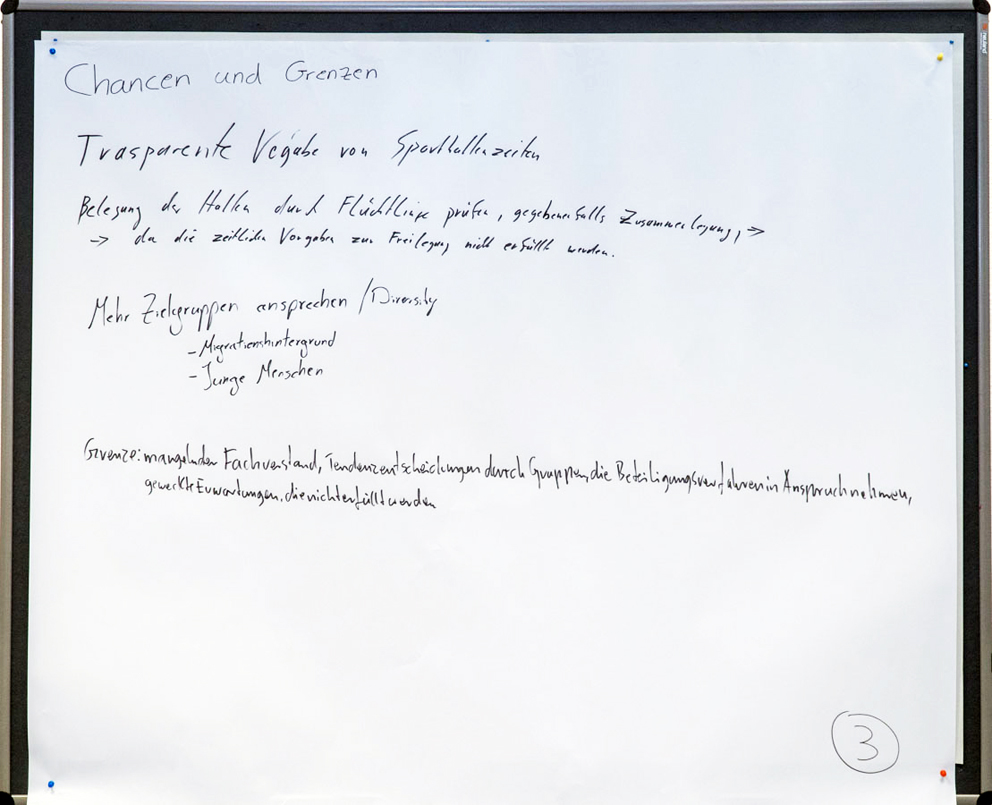 Chancen und Grenzen
Trasparente Vegabe von Sporthallenzeiten
Belegung der Hallen durch Flüchtlinge prüfen, gegebenenfalls Zusammenlegung, →
→ da die zeitlichen Vorgaben zur Freilegung nicht erfüllt werden.
Mehr Zielgruppen ansprechen / Diversity
- Migrationshintergrund
- Junge Menschen
Grenze: mangelnder Fachverstand, Tendenzentscheidungen durch Gruppen, die Beteiligungsverfahren in Anspruch nehmen,
geweckte Erwartungen, die nicht erfüllt werden
3